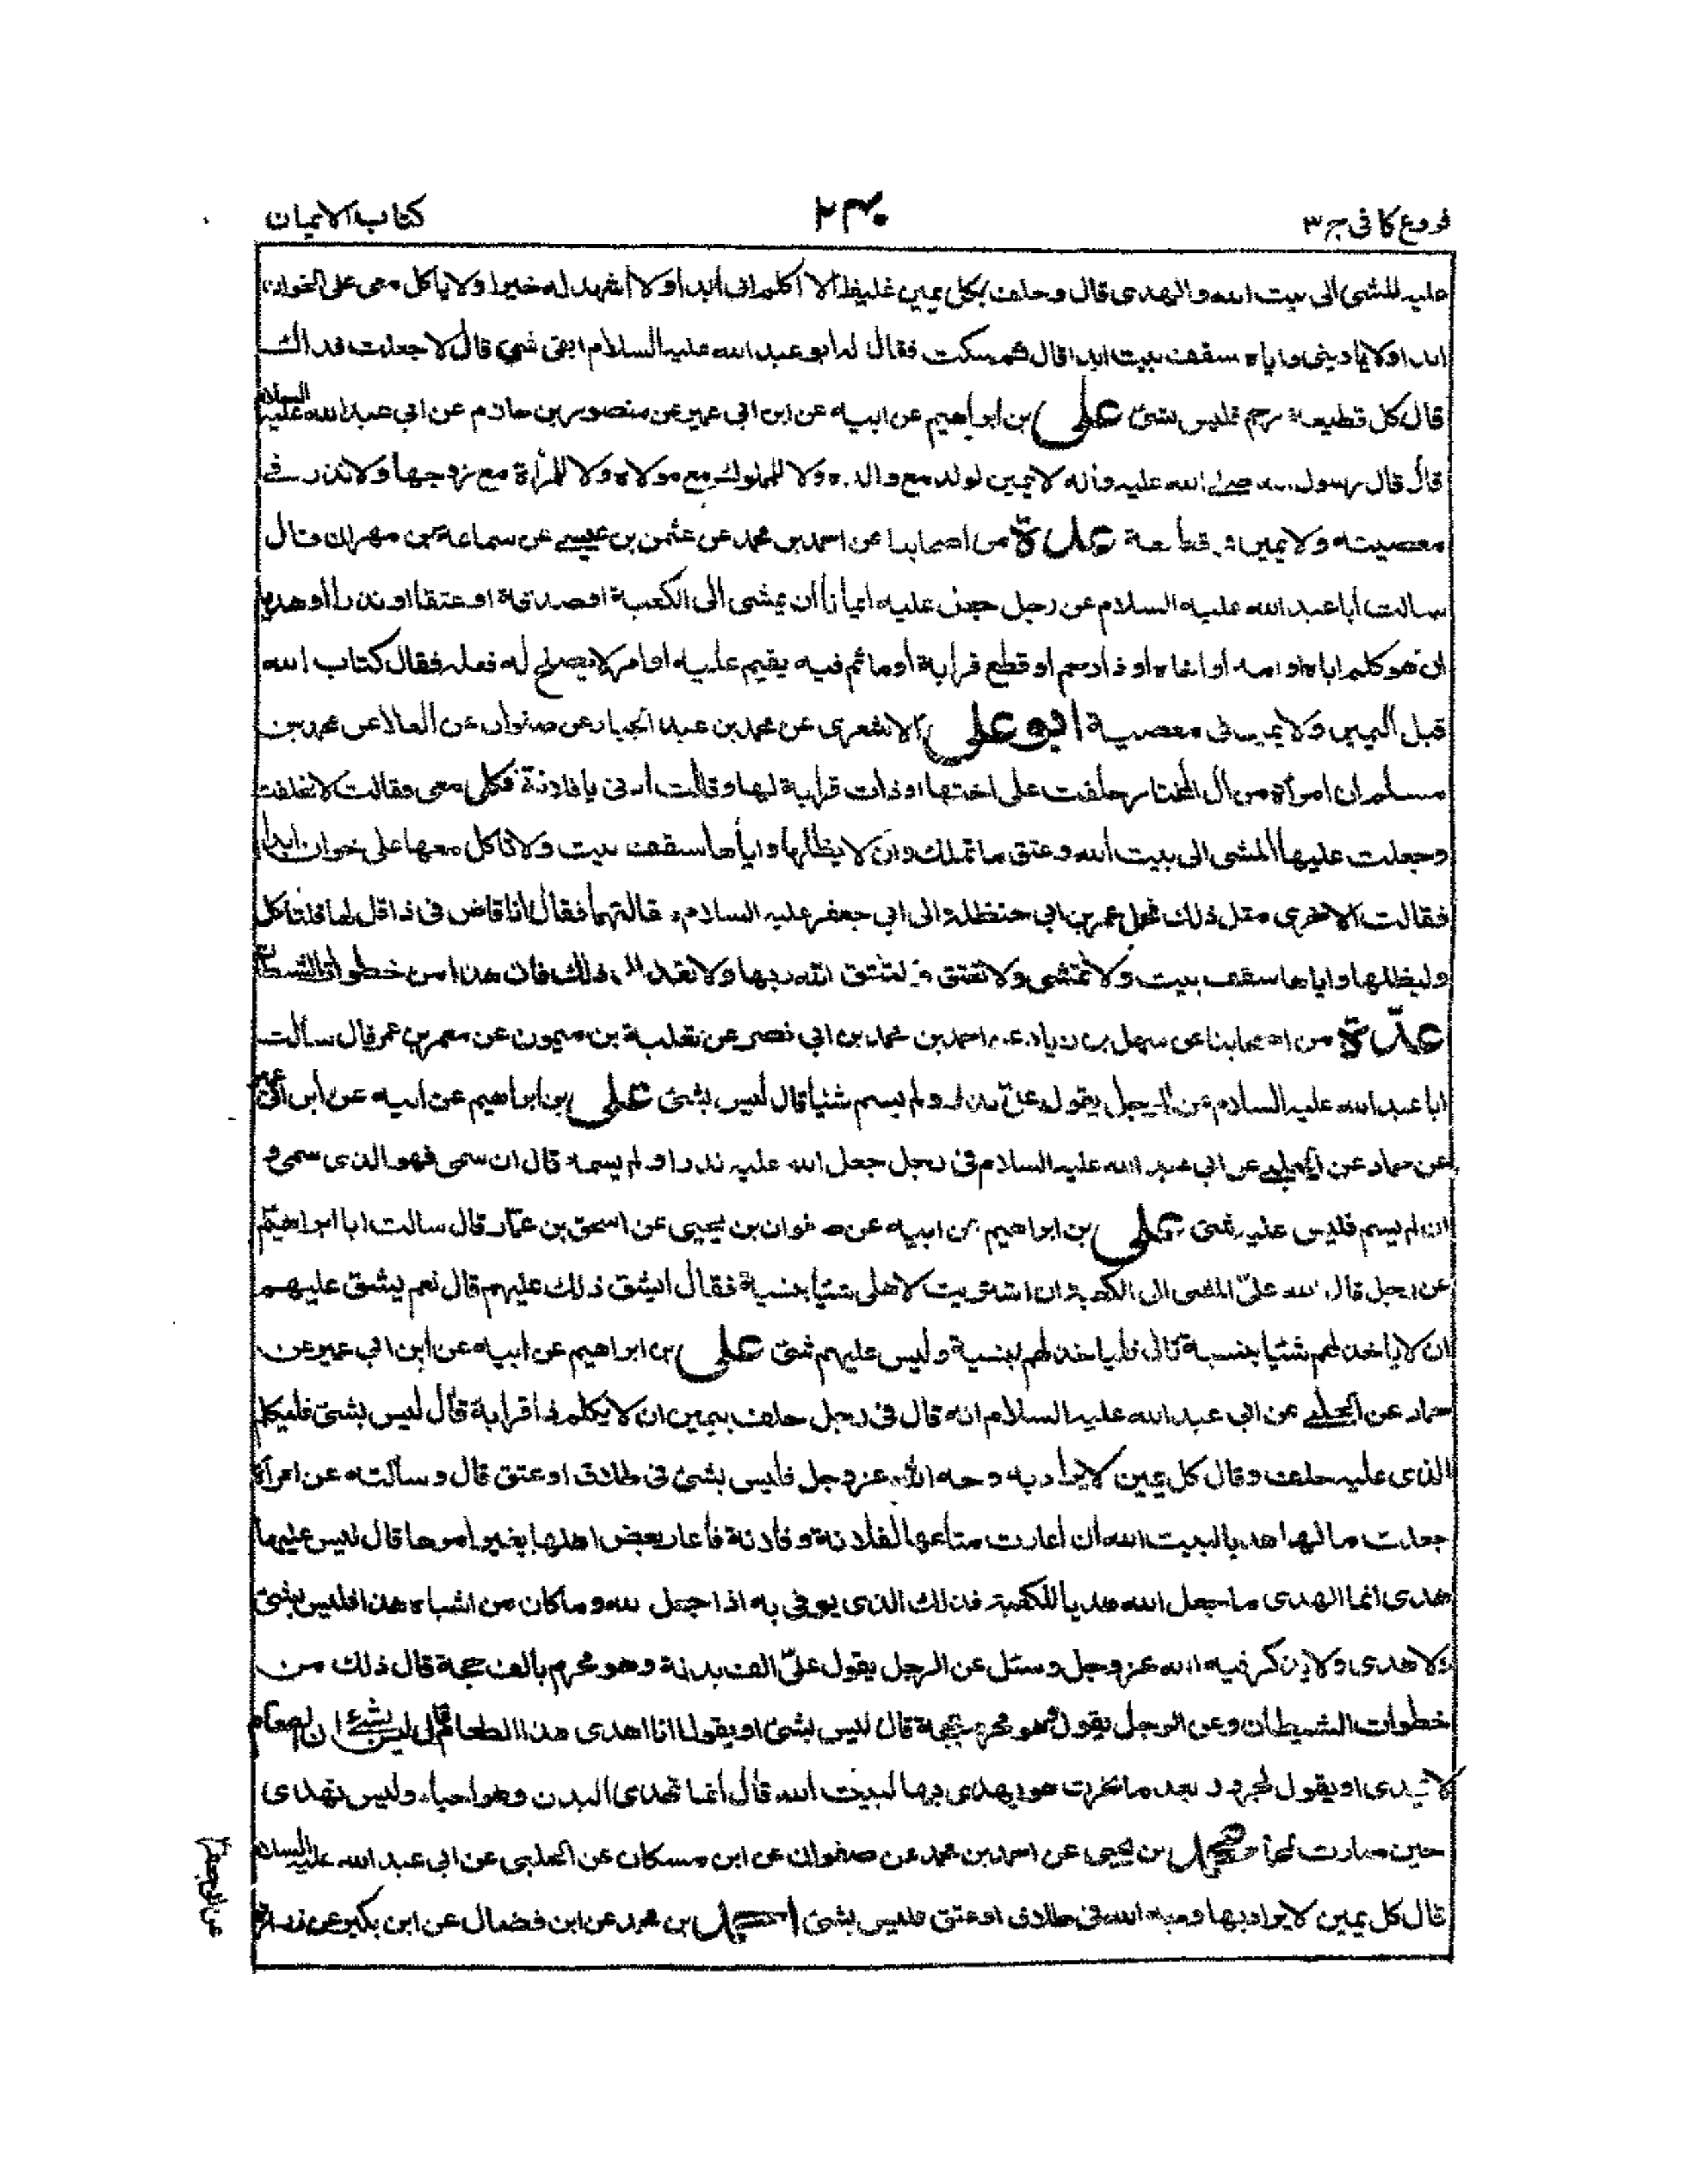 فروع كافى ج ٣
٢٣٠
كتاب الايمان
عليه المشى الى بيت الله والهدى قال وحلف بكل يمين غليظ الا اكلم ابى ابدا ولا اشهد له خيرا ولا ياكل معى على الخوان
ابدا ولا ياوينى واياه سقف بيت ابدا قال ثم سكت فقال له ابو عبد الله عليه السلام ابقى شئ قال لا جعلت فداك
قال كل قطيعة رحم فليس بشئ على بن ابراهيم عن ابيه عن ابن ابى عمير عن منصور بن حازم عن ابى عبد الله عليه السلام
قال قال رسول الله صلى الله عليه واله لا يمين لولد مع والده ولا للمملوك مع مولاه ولا للمرأة مع زوجها ولا نذر فى
معصيته ولا يمين فى قطيعة عدة من اصحابنا عن احمد بن محمد عن عثمن بن عيسى عن سماعة بن مهران قال
سالت أبا عبد الله عليه السلام عن رجل جعل عليه ايمانا أن يمشى الى الكعبة او صدقة او عتقا او نذرا او هديا
ان هو كلم اباه او امه او اخاه او ذا رحم او قطع قرابة أو ماثم فيه يقيم عليه او امر لا يصلح له فعله فقال كتاب الله
قبل اليمين ولا يمين فى معصية ابو على الاشعرى عن محمد بن عبد الجبار عن صفوان عن العلا عن محمد بن
مسلم ان امرأة من آل المختار حلفت على اختها او ذات قرابة لها وقالت ادنى يا فلانة فكلى معى فقالت لا فحلفت
وجعلت عليها المشى الى بيت الله وعتق ما تملك وان لا يظلها واياها سقف بيت ولا تاكل معها على خوان ابدا
فقالت الاخرى مثل ذلك فحمل عمر بن ابى حنظلة الى ابى جعفر عليه السلام مقالتهما فقال انا قاض فى ذا قل لها فلتاكل
وليظلها واياها سقف بيت ولا تمشى ولا تعتق ولتتق الله ربها ولا تعد الى ذلك فان هذا من خطوات الشيطان
عدة من اصحابنا عن سهل بن زياد عن احمد بن محمد بن ابى نصر عن ثعلبة بن ميمون عن معمر بن عمر قال سألت
ابا عبد الله عليه السلام عن الرجل يقول على نذر ولم يسم شئيا قال ليس بشئ على بن ابراهيم عن ابيه عن ابن ابى عمير
عن حماد عن الحلبى عن ابى عبد الله عليه السلام فى رجل جعل الله عليه نذرا ولم يسمه قال ان سمى فهو الذى سمى و
ان لم يسم فليس عليه شئ على بن ابراهيم عن ابيه عن صفوان بن يحيى عن اسحق بن عمار قال سالت ابا ابراهيم
عن رجل قال لله علىّ المشى الى الكعبة ان اشتريت لاهلى شئيا بنسية فقال ايشق ذلك عليهم قال نعم يشق عليهم
ان لا ياخذ لهم شئيا بنسية قال فلياخذ لهم بنسية وليس عليهم شئ على بن ابراهيم عن ابيه عن ابن ابى عمير عن
حماد عن الحلبى عن ابى عبد الله عليه السلام انه قال فى رجل حلف بيمين ان لا يكلم ذا قرابة قال ليس بشئ فليكلم
الذى عليه حلف وقال كل يمين لا يراد به وجه الله عز وجل فليس بشئ فى طلاق او عتق قال وسألته عن امرأة
جعلت مالها هديا لبيت الله ان اعارت متاعها لفلانة وفلانة فأعار بعض اهلها بغير امرها قال ليس عليها
هدى انما الهدى ما جعل الله هديا للكعبة فذلك الذى يوفى به اذا جعل لله وما كان من اشباه هذا فليس بشئ
ولا هدى ولا يذكر فيه الله عز وجل وسئل عن الرجل يقول علىّ الف بدنة وهو محرم بالف حجة قال ذلك من
خطوات الشيطان وعن الرجل يقول هو محرم بحجة قال ليس بشئ او يقول انا اهدى هذا الطعام قال ليس بشئ ان الطعام
لا يهدى او يقول لجزور بعد ما نحرت هو يهدى بها لبيت الله قال انما تهدى البدن وهو احياء وليس تهدى
حين صارت لحما محمد بن يحيى عن احمد بن محمد عن صفوان عن ابن مسكان عن الحلبى عن ابى عبد الله عليه السلام
قال كل يمين لا يراد بها وجه الله فى طلاق او عتق فليس بشئ احمد بن محمد عن ابن فضال عن ابن بكير عن زرارة
عن ابى جعفر